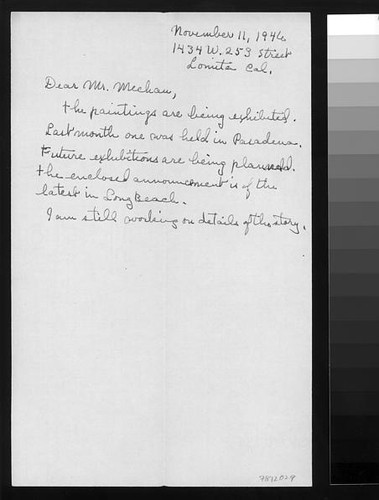 November 11, 1946
1434 W. 253 Street
Lomita Cal.
Dear Mr. Mechau,
the paintings are being exhibited.
Last month one was held in Pasadena.
Future exhibitions are being planned.
the enclosed announcement is of the
latest in Long Beach.
I am still working on details of the story.